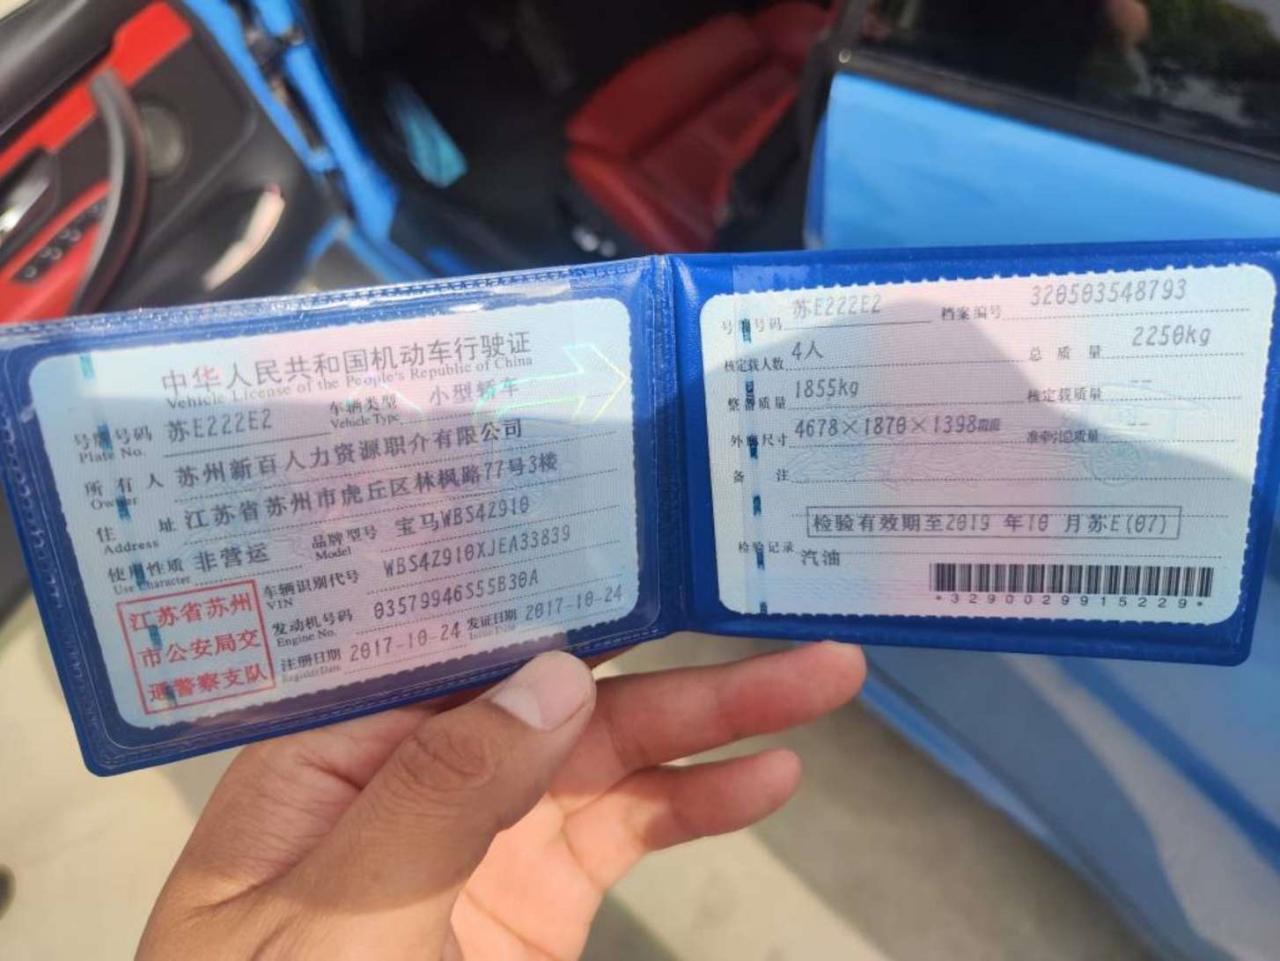 中华人民共和国机动车行驶证
Vehicle License of the People's Republic of China
号牌号码 苏E222E2 车辆类型 小型轿车
Plate No. Vehicle Type
所有人 苏州新百人力资源职介有限公司
Owner
住址 江苏省苏州市虎丘区林枫路77号3楼
Address
使用性质 非营运 品牌型号 宝马WBS4Z910
Use Character Model
江苏省苏州
市公安局交
通警察支队
车辆识别代号 WBS4Z910XJEA33839
VIN
发动机号码 03579946S55B30A
Engine No.
注册日期 2017-10-24 发证日期 2017-10-24
Register Date Issue Date
号牌号码 苏E222E2 档案编号 320503548793
核定载人数 4人 总质量 2250kg
整备质量 1855kg 核定载质量 --
外廓尺寸 4678×1870×1398mm 准牵引总质量 --
备注
检验有效期至2019年10月苏E(07)
检验记录
汽油
*3290029915229*